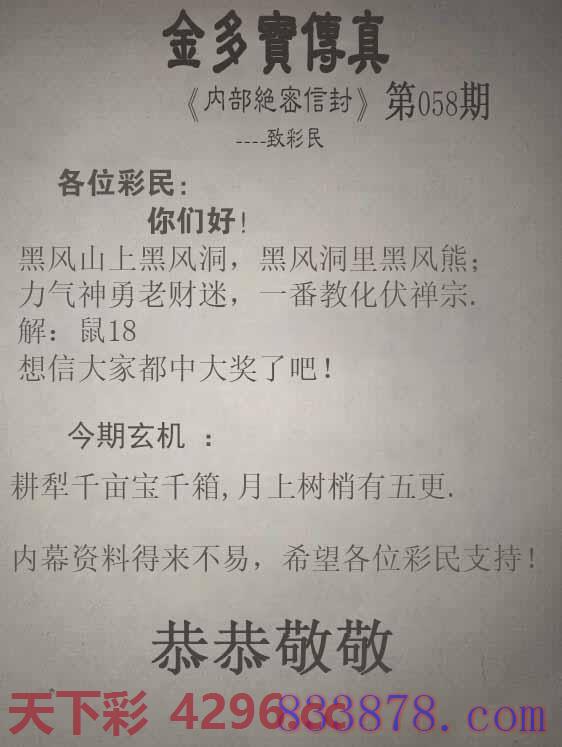 金多寶傳真
《内部絕密信封》第058期
----致彩民
各位彩民:
你们好!
黑风山上黑风洞，黑风洞里黑风熊;
力气神勇老财迷，一番教化伏禅宗.
解：鼠18
想信大家都中大奖了吧!
今期玄机 ：
耕犁千亩宝千箱,月上树梢有五更.
内幕资料得来不易，希望各位彩民支持!
恭恭敬敬
天下彩 4296.cc
883878.com